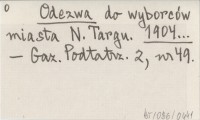 o
Odezwa do wyborców
miasta N. Targu. 1904...
— Gaz. Podtatrz. 2, nr 49.